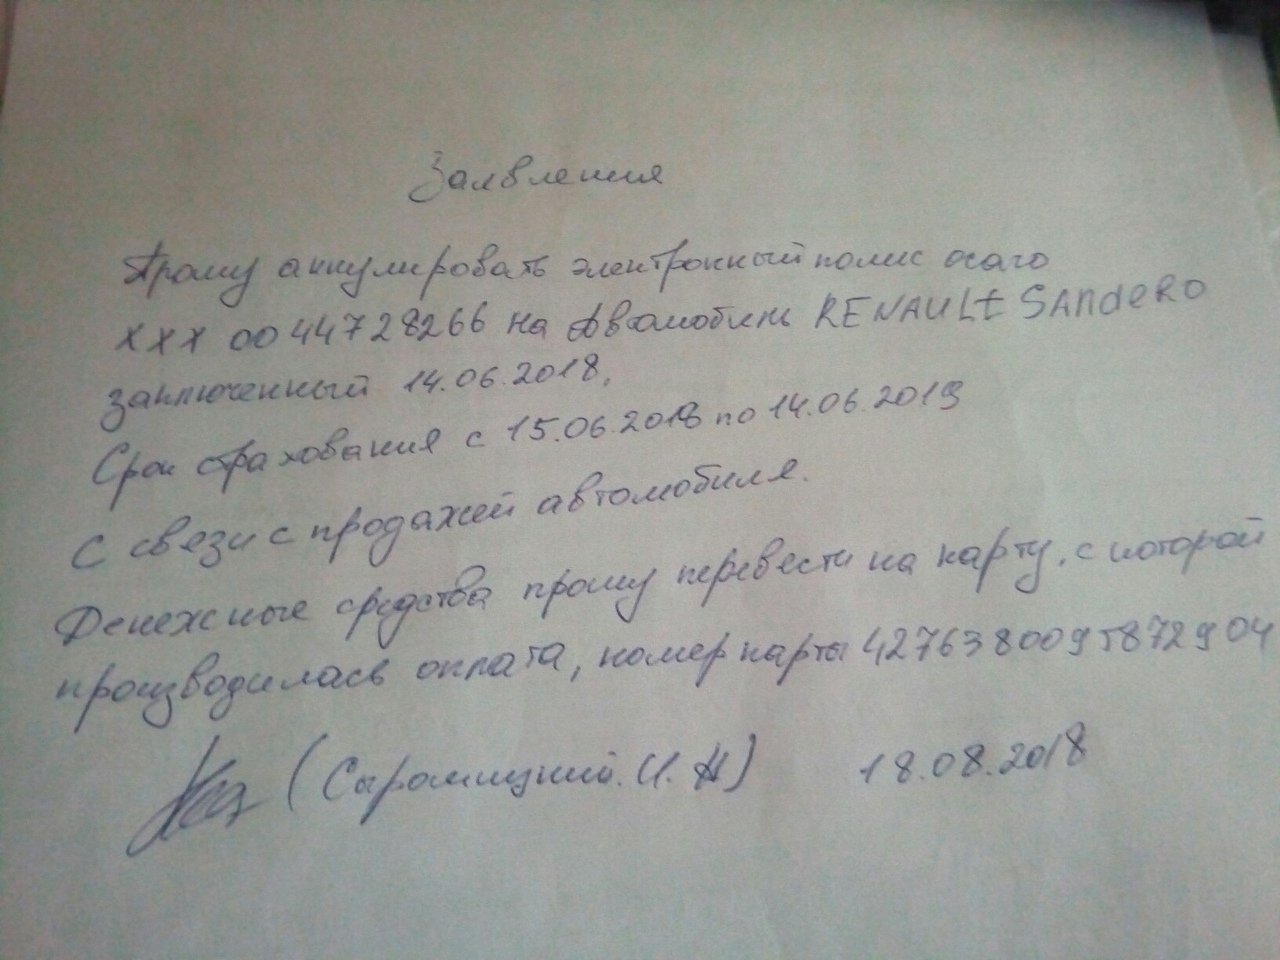 Заявления
Прошу аннулировать электронный полис осаго
ХХХ 0044728266 на Автомобиль RENAULT SANdeRO
заключенный 14.06.2018,
Срок страхования с 15.06.2018 по 14.06.2019
С связи с продажей автомобиля.
Денежные средства прошу перевести на карту, с которой
производилась оплата, номер карты 4276380095872904
(Сыромицкий. И. Н) 18.08.2018